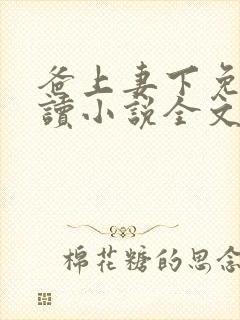 爸上妻下免
讀小説全文
棉花糖的思念